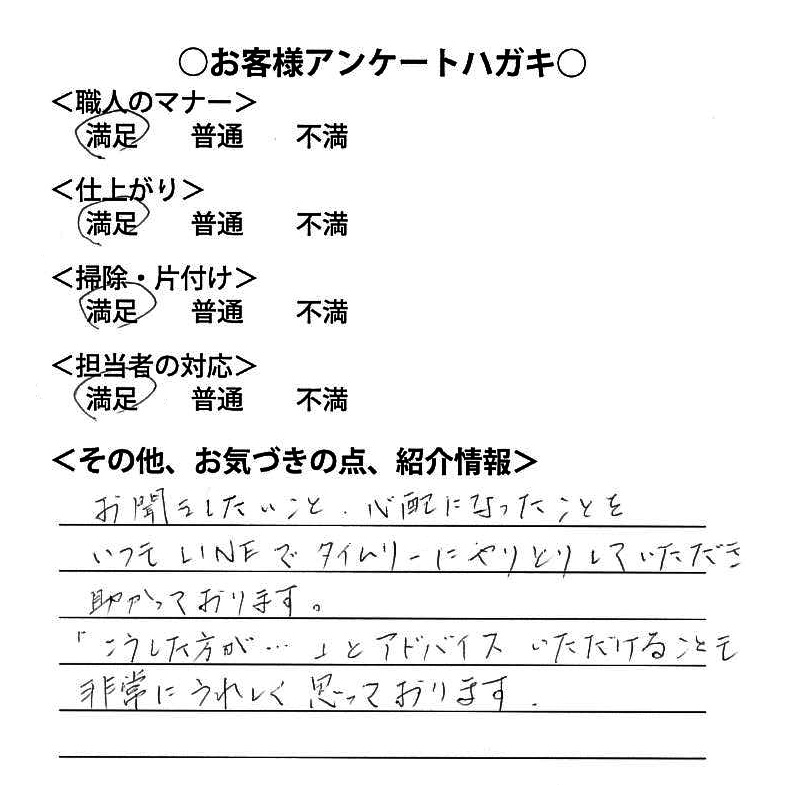 ○お客様アンケートハガキ○
＜職人のマナー＞
満足 普通 不満
＜仕上がり＞
満足 普通 不満
＜掃除・片付け＞
満足 普通 不満
＜担当者の対応＞
満足 普通 不満
＜その他、お気づきの点、紹介情報＞
お聞きしたいこと、心配になったことを
いつもLINEでタイムリーにやりとりしていただき
助かっております。
「こうした方が…」とアドバイスいただけることも
非常にうれしく思っております。